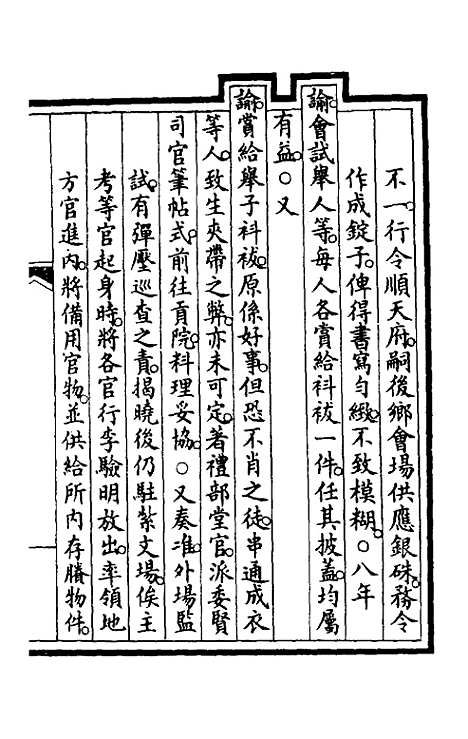 不一。行令順天府。嗣後鄉會場供應銀硃。務令
作成錠子。俾得書寫勻緻。不致模糊。○八年
諭。會試舉人等。每人各賞給衻袚一件。任其披蓋。均屬
有益。○又
諭。賞給舉子衻袚。原係好事。但恐不肖之徒。串通成衣
等人。致生夾帶之弊。亦未可定。著禮部堂官。派委賢
司官筆帖式。前往貢院。料理妥協。○又奏准。外場監
試。有彈壓巡查之責。揭曉後仍駐紮文場。俟主
考等官起身時。將各官行李驗明放出。率領地
方官進內。將備用官物。並供給所內存賸物件。